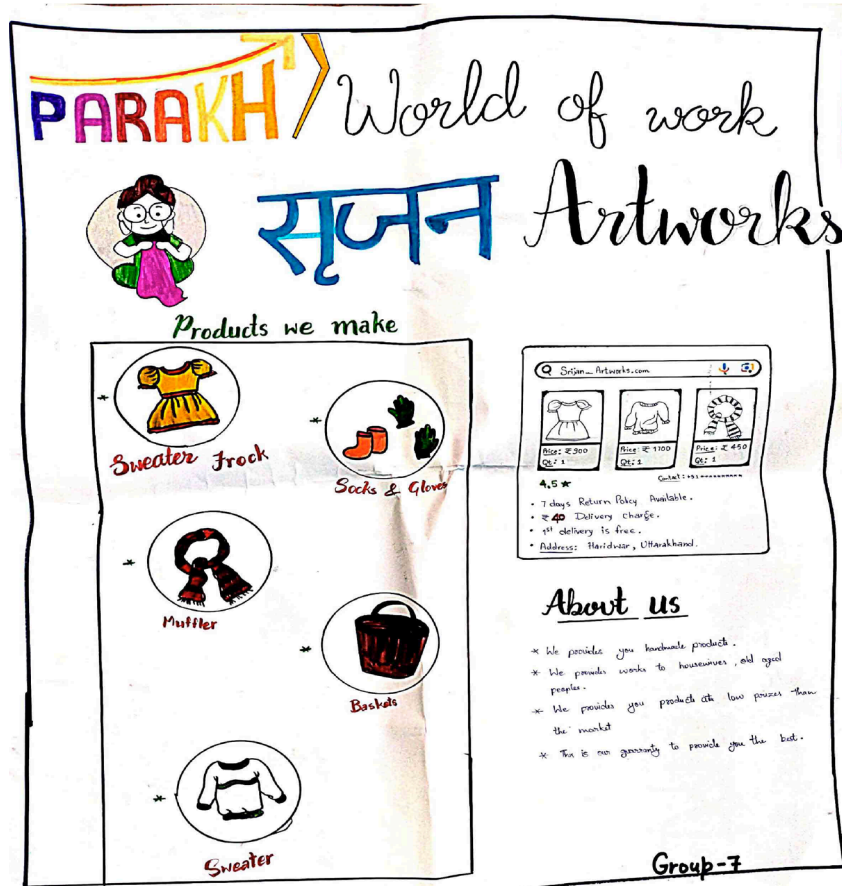 PARAKH World of work
सृजन Artworks
Products we make
Sweater Frock
Socks & Gloves
Muffler
Baskets
Sweater
Srijan_Artworks.com
Price: ₹ 900
Qt: 1
Price: ₹ 1100
Qt: 1
Price: ₹ 450
Qt: 1
4.5 ★
Contact: +91
• 7 days Return Policy Available.
• ₹ 40 Delivery Charge.
• 1st delivery is free.
• Address: Haridwar, Uttarakhand.
About us
* We provides you handmade products.
* We provides works to housewives, old aged
peoples.
* We provides you products at low prizes than
the market
* This is our guarranty to provide you the best.
Group-7